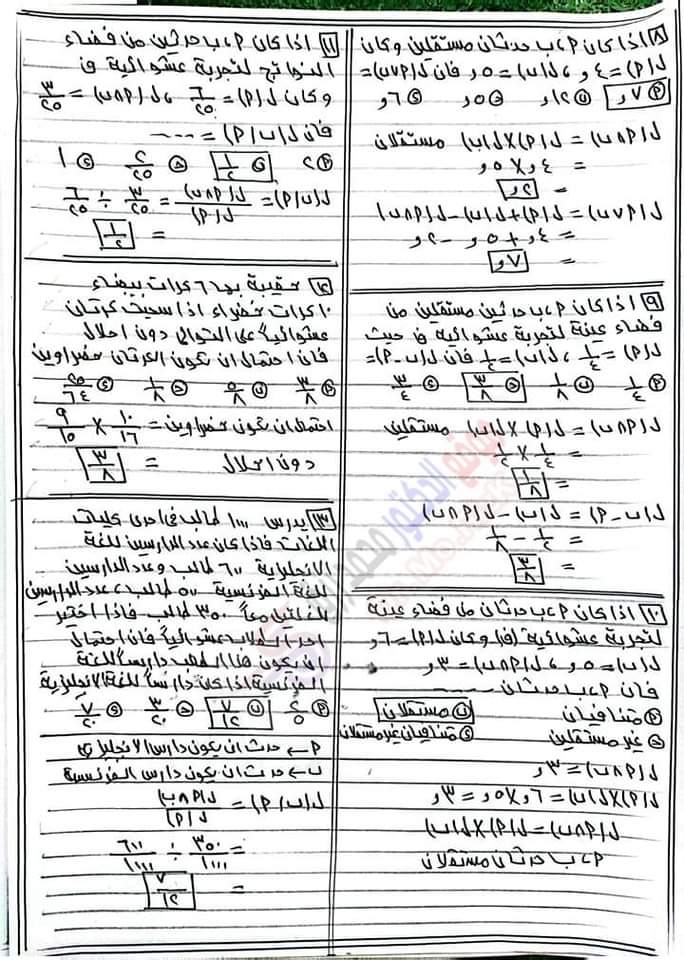 ٨ اذا كان P ، ب حدثان مستقلين وكان
ل(P) = ٤و ، ل(ب) = ٥و فان ل(P∪ب) =
P ٧و ب ١٢و ٥و د ٦و
ل(P∩ب) = ل(P) × ل(ب) مستقلان
= ٤و × ٥و
= ٢و
ل(P∪ب) = ل(P) + ل(ب) - ل(P∩ب)
= ٤و + ٥و - ٢و
= ٧و
٩ اذا كان P ، ب حدثين مستقلين من
فضاء عينة لتجربة عشوائية ف حيث
ل(P) = ١/٤ ، ل(ب) = ١/٢ فان ل(ب - P) =
P ١/٤ ب ١/٨ ح ٣/٨ د ٣/٤
ل(P∩ب) = ل(P) × ل(ب) مستقلين
= ١/٤ × ١/٢
= ١/٨
ل(ب - P) = ل(ب) - ل(P∩ب)
= ١/٢ - ١/٨
= ٣/٨
١٠ اذا كان P ، ب حدثان من فضاء عينة
لتجربة عشوائية (ف) وكان ل(P) = ٦و
ل(ب) = ٥و ، ل(P∩ب) = ٣و
فان P ، ب حدثان -----
P متنافيان ب مستقلان
ح غير مستقلين د متنافيان غير مستقلان
ل(P∩ب) = ٣و
ل(P) × ل(ب) = ٦و × ٥و = ٣و
ل(P∩ب) = ل(P) × ل(ب)
P ، ب حدثان مستقلان
١١ اذا كان P ، ب حدثين من فضاء
النواتج لتجربة عشوائية ف
وكان ل(P) = ٦/٢٥ ، ل(P∩ب) = ٣/٢٥
فان ل(ب|P) = ----
P ٢ ١/٢ ح ٢/٢٥ د ١
ل(ب|P) = ل(P∩ب)/ل(P) = ٣/٢٥ ÷ ٦/٢٥
= ١/٢
١٢ حقيبة بها ٦ كرات بيضاء
١٠ كرات خضراء اذا سحبت كرتان
عشوائياً على التوالي دون احلال
فان احتمال ان تكون الكرتان خضراوين
P ٣/٨ ب ٥/٨ ح ١/٨ د ٢٥/٦٤
احتمال ان تكون خضراوين = ١٠/١٦ × ٩/١٥
دون احلال = ٣/٨
١٣ يدرس ١٠٠٠ طالب فى احدى كليات
اللغات فاذا كان عدد الدارسين للغة
الانجليزية ٦٠٠ طالب وعدد الدارسين
للغة الفرنسية ٥٠٠ طالب ، عدد الدارسين
للغتين معاً ٣٥٠ طالب فاذا اختير
احد الطلاب عشوائياً فان احتمال
ان يكون هذا الطالب دارساً للغة
الفرنسية اذا كان دارساً للغة الانجليزية
P ٢/٥ ب ٧/١٢ ح ٣/٢٠ د ٧/٢٠
P ← حدث ان يكون دارس الانجليزية
ب ← حدث ان يكون دارس الفرنسية
ل(ب|P) = ل(P∩ب)/ل(P)
= ٣٥٠/١٠٠٠ ÷ ٦٠٠/١٠٠٠
= ٧/١٢